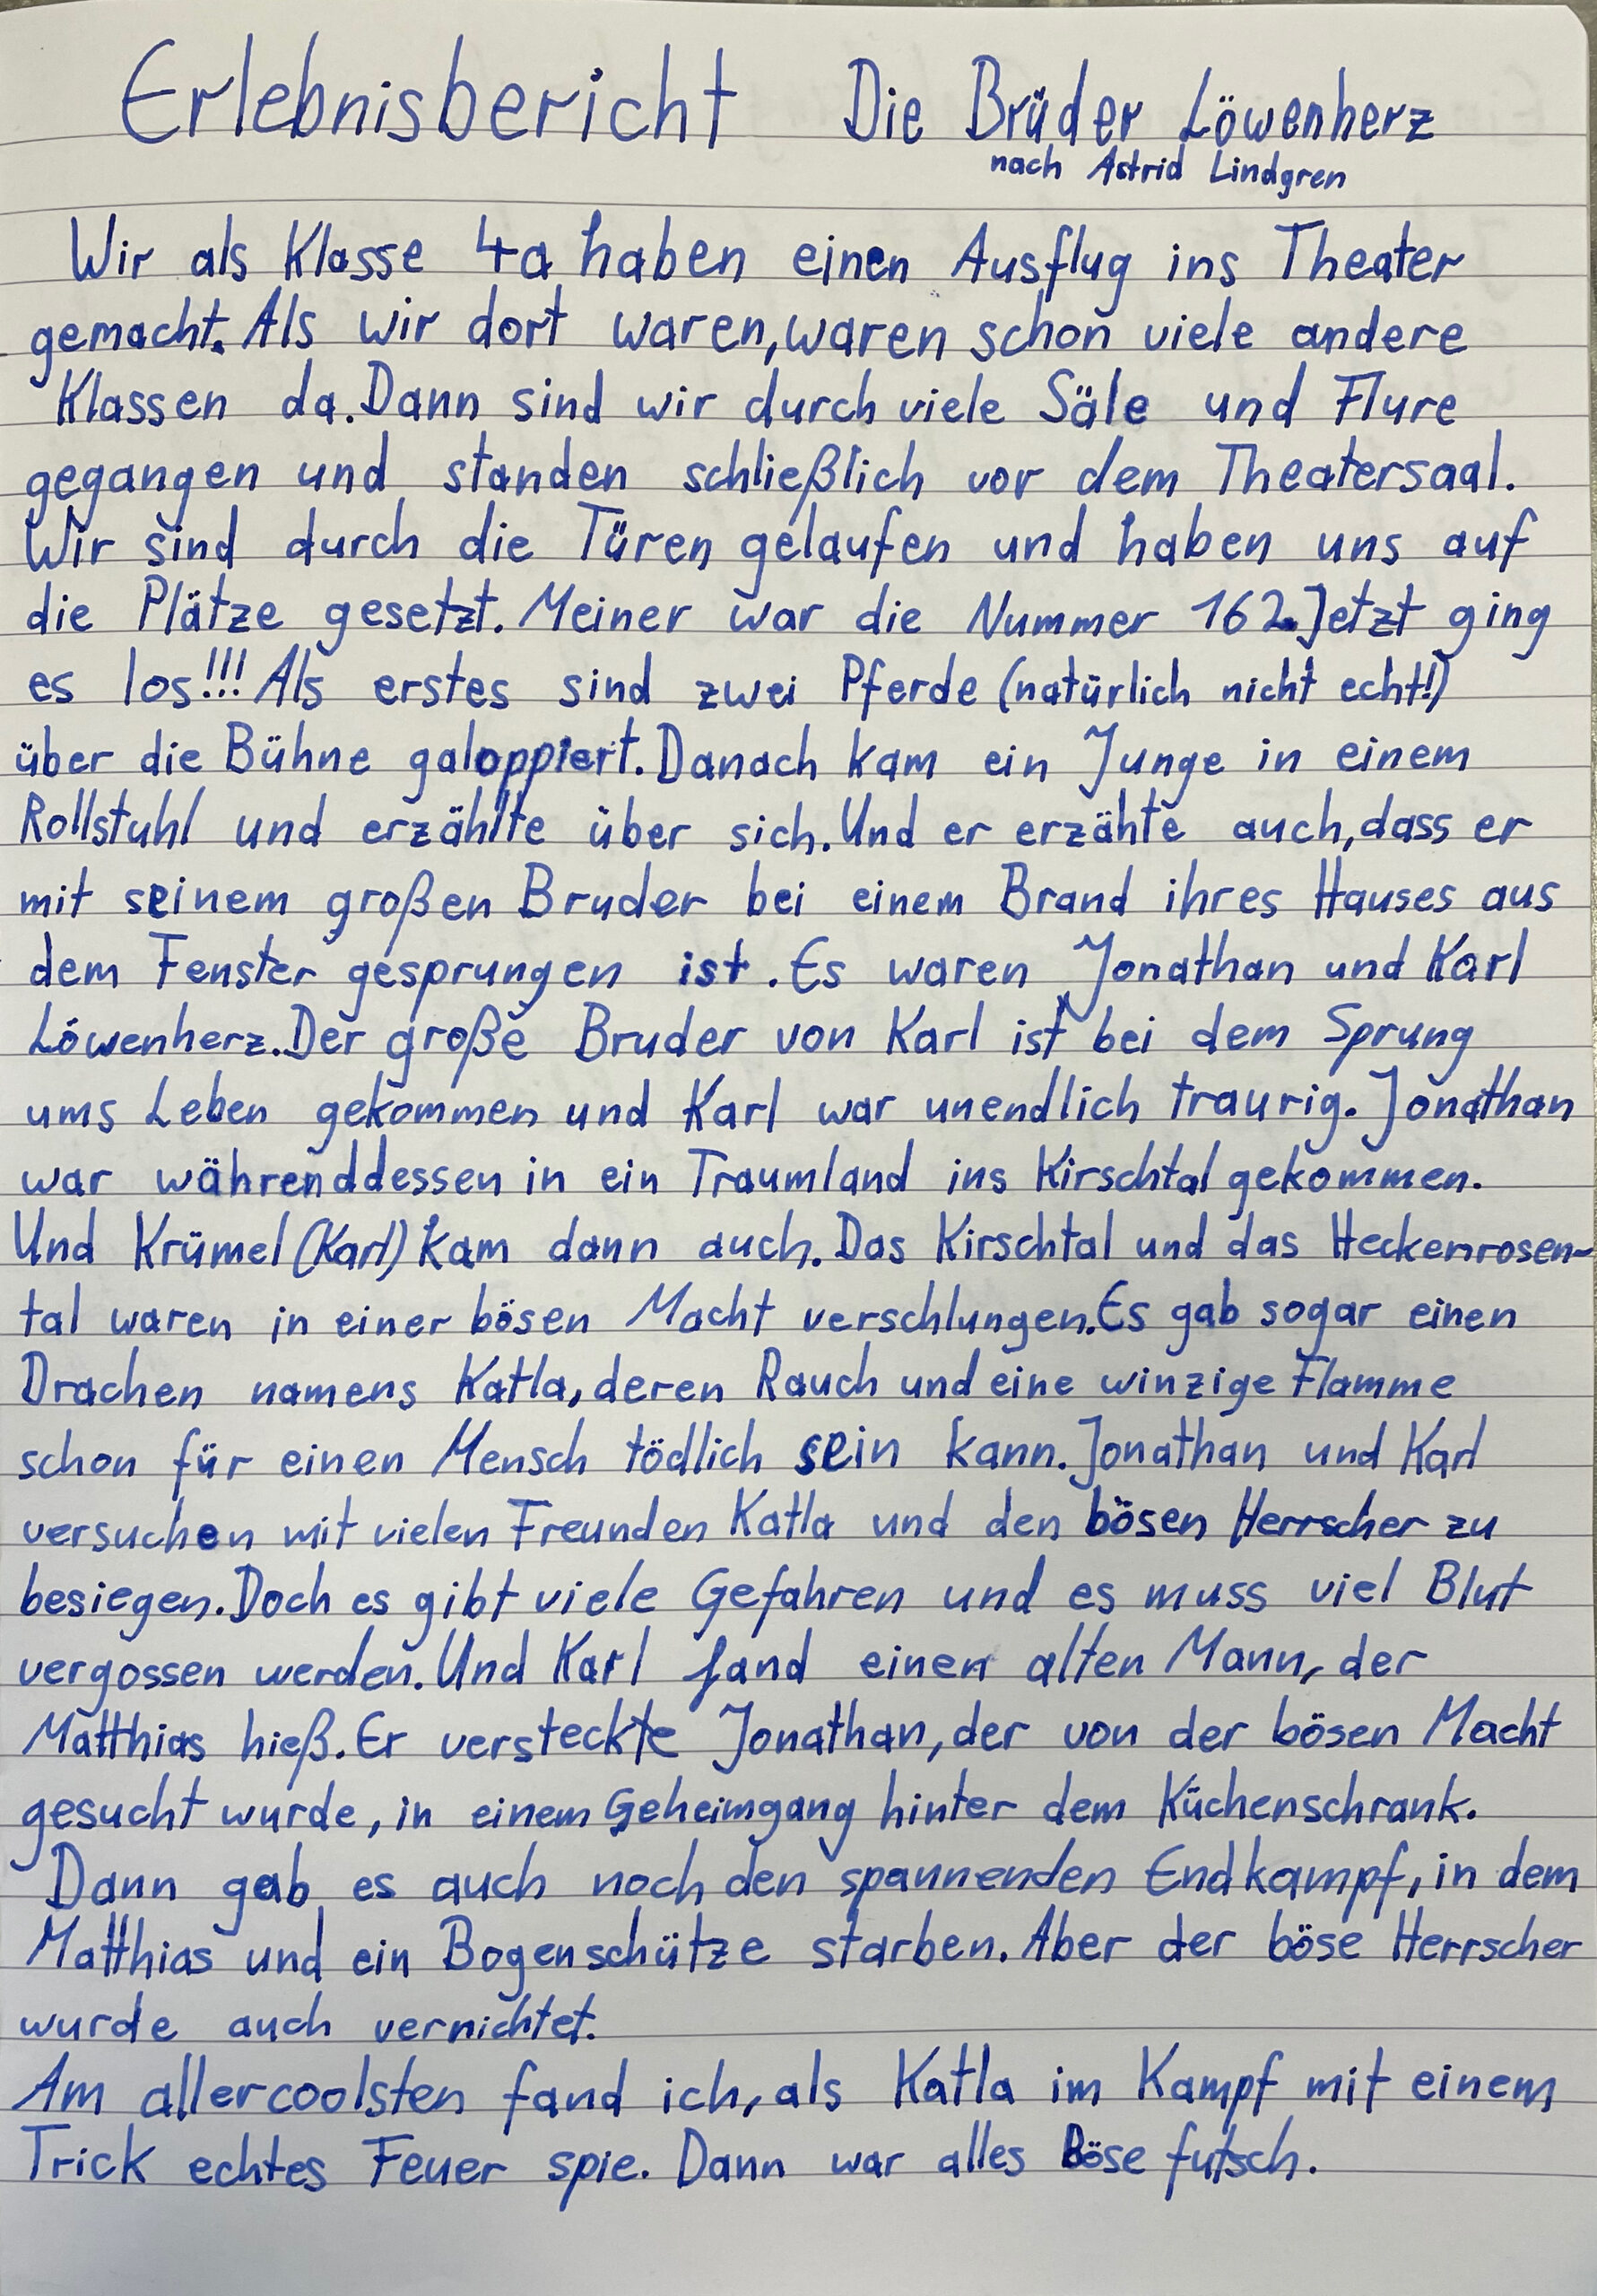 Erlebnisbericht Die Brüder Löwenherz
nach Astrid Lindgren
Wir als Klasse 4a haben einen Ausflug ins Theater
gemacht. Als wir dort waren, waren schon viele andere
Klassen da. Dann sind wir durch viele Säle und Flure
gegangen und standen schließlich vor dem Theatersaal.
Wir sind durch die Türen gelaufen und haben uns auf
die Plätze gesetzt. Meiner war die Nummer 162. Jetzt ging
es los!!! Als erstes sind zwei Pferde (natürlich nicht echt!)
über die Bühne galoppiert. Danach kam ein Junge in einem
Rollstuhl und erzählte über sich. Und er erzähte auch, dass er
mit seinem großen Bruder bei einem Brand ihres Hauses aus
dem Fenster gesprungen ist. Es waren Jonathan und Karl
Löwenherz. Der große Bruder von Karl ist bei dem Sprung
ums Leben gekommen und Karl war unendlich traurig. Jonathan
war währenddessen in ein Traumland ins Kirschtal gekommen.
Und Krümel (Karl) kam dann auch. Das Kirschtal und das Heckenrosen-
tal waren in einer bösen Macht verschlungen. Es gab sogar einen
Drachen namens Katla, deren Rauch und eine winzige Flamme
schon für einen Mensch tödlich sein kann. Jonathan und Karl
versuchen mit vielen Freunden Katla und den bösen Herrscher zu
besiegen. Doch es gibt viele Gefahren und es muss viel Blut
vergossen werden. Und Karl fand einen alten Mann, der
Matthias hieß. Er versteckte Jonathan, der von der bösen Macht
gesucht wurde, in einem Geheimgang hinter dem Küchenschrank.
Dann gab es auch noch den spannenden Endkampf, in dem
Matthias und ein Bogenschütze starben. Aber der böse Herrscher
wurde auch vernichtet.
Am allercoolsten fand ich, als Katla im Kampf mit einem
Trick echtes Feuer spie. Dann war alles Böse futsch.